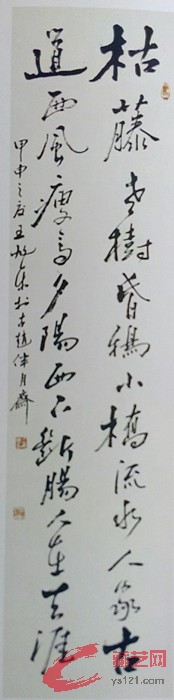 枯藤老樹昏鴉小橋流水人家古
道西風瘦馬夕陽西下斷腸人在天涯
甲申之夏王於古趙伴月齋
艺网
ys121.com